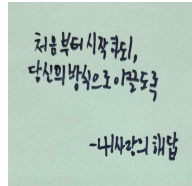 처음부터 시작하되,
당신의 방식으로 이끌도록
-내 사랑의 해답